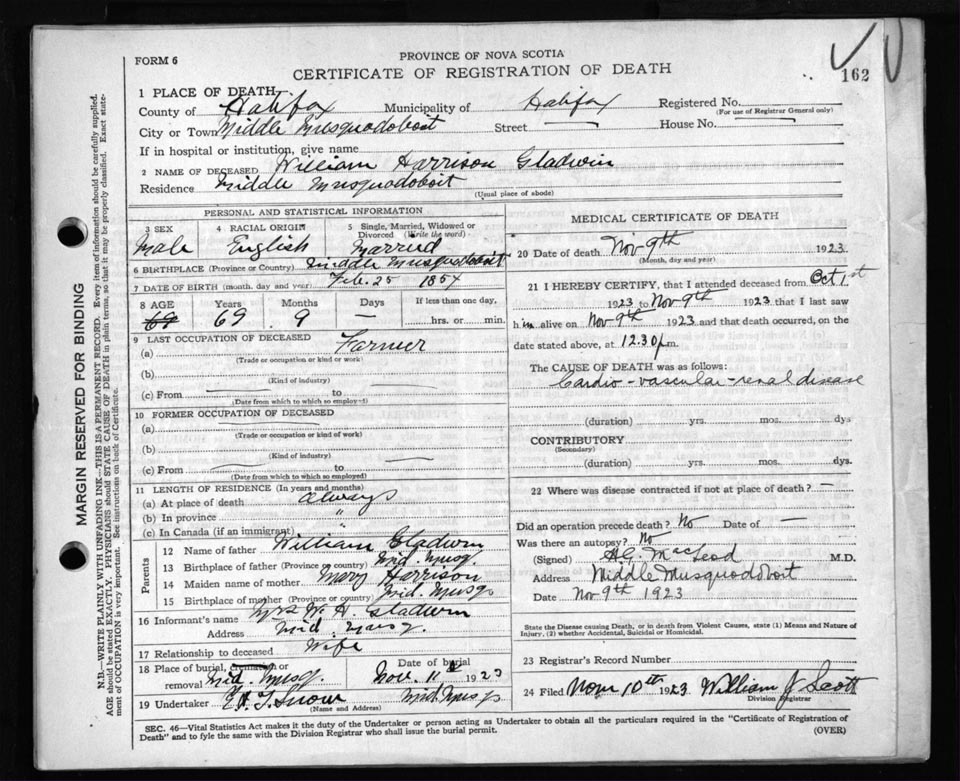 FORM 6
PROVINCE OF NOVA SCOTIA
CERTIFICATE OF REGISTRATION OF DEATH
162
1 PLACE OF DEATH
County of Halifax Municipality of Halifax Registered No.
(For use of Registrar General only)
City or Town Middle Musquodoboit Street — House No. —
If in hospital or institution, give name
2 NAME OF DECEASED William Harrison Gladwin
Residence Middle Musquodoboit
(Usual place of abode)
PERSONAL AND STATISTICAL INFORMATION
3 SEX 4 RACIAL ORIGIN 5 Single, Married, Widowed or Divorced (Write the word)
Male English Married
6 BIRTHPLACE (Province or Country) Middle Musquodoboit
7 DATE OF BIRTH (month, day and year) Feb. 25 1854
8 AGE Years Months Days If less than one day,
69 69 9 — hrs. or min.
9 LAST OCCUPATION OF DECEASED
(a) Farmer
(Trade or occupation or kind of work)
(b)
(Kind of industry)
(c) From to
(Date from which to which so employed)
10 FORMER OCCUPATION OF DECEASED
(a)
(Trade or occupation or kind of work)
(b)
(Kind of industry)
(c) From to
(Date from which to which so employed)
11 LENGTH OF RESIDENCE (In years and months)
(a) At place of death always
(b) In province "
(c) In Canada (if an immigrant) "
Parents
12 Name of father William Gladwin
13 Birthplace of father (Province or country) Mid. Musq.
14 Maiden name of mother Mary Harrison
15 Birthplace of mother (Province or country) Mid. Musq
16 Informant's name Mrs W. H. Gladwin
Address Mid. Musq.
17 Relationship to deceased Wife
18 Place of burial, cremation or removal Mid. Musq. Date of burial Nov. 11 1923
19 Undertaker Snow Mid. Musq
(Name and Address)
MEDICAL CERTIFICATE OF DEATH
20 Date of death Nov 9th 1923
(Month, day and year)
21 I HEREBY CERTIFY, that I attended deceased from Oct 1st
1923 to Nov 9th 1923 that I last saw
him alive on Nov 9th 1923 and that death occurred, on
date stated above, at 12.30 p.m.
The CAUSE OF DEATH was as follows:
Cardio-vascular-renal disease
(duration) yrs. mos. dys
CONTRIBUTORY
(Secondary)
(duration) yrs. mos. dys.
22 Where was disease contracted if not at place of death? —
Did an operation precede death? No Date of —
Was there an autopsy? No
(Signed) MacLeod M.D.
Address Middle Musquodoboit
Date Nov 9th 1923
State the Disease causing Death, or in death from Violent Causes, state (1) Means and Nature of
Injury, (2) whether Accidental, Suicidal or Homicidal.
23 Registrar's Record Number
24 Filed Nov 10th 1923 William J Scott
Division Registrar
SEC. 46—Vital Statistics Act makes it the duty of the Undertaker or person acting as Undertaker to obtain all the particulars required in the "Certificate of Registration of
Death" and to fyle the same with the Division Registrar who shall issue the burial permit.
(OVER)
MARGIN RESERVED FOR BINDING
N.B.—WRITE PLAINLY WITH UNFADING INK—THIS IS A PERMANENT RECORD. Every item of information should be carefully supplied.
AGE should be stated EXACTLY. PHYSICIANS should STATE CAUSE OF DEATH in plain terms, so that it may be properly classified. Exact state-
ment of OCCUPATION is very important. See instructions on back of Certificate.